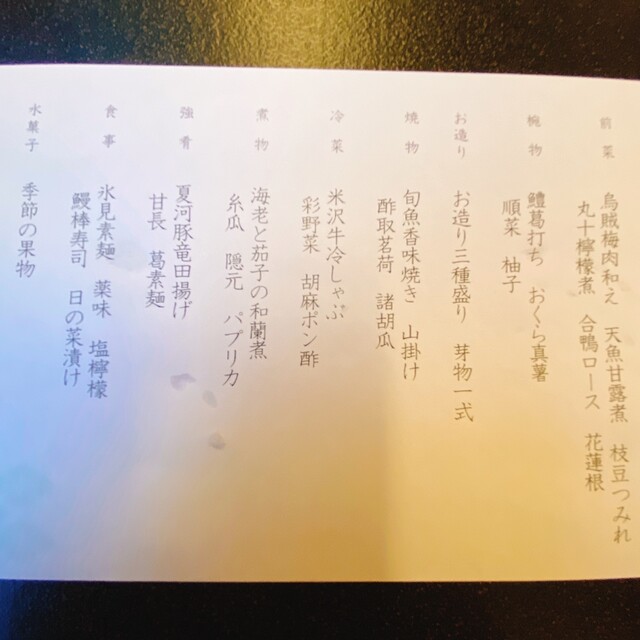 前菜
烏賊梅肉和え　天魚甘露煮　枝豆つみれ
丸十檸檬煮　合鴨ロース　花蓮根
椀物
鱧葛打ち　おくら真薯
順菜　柚子
お造り
お造り三種盛り　芽物一式
焼物
旬魚香味焼き　山掛け
酢取茗荷　諸胡瓜
冷菜
米沢牛冷しゃぶ
彩野菜　胡麻ポン酢
煮物
海老と茄子の和蘭煮
糸瓜　隠元　パプリカ
強肴
夏河豚竜田揚げ
甘長　葛素麺
食事
氷見素麺　薬味　塩檸檬
鰻棒寿司　日の菜漬け
水菓子
季節の果物